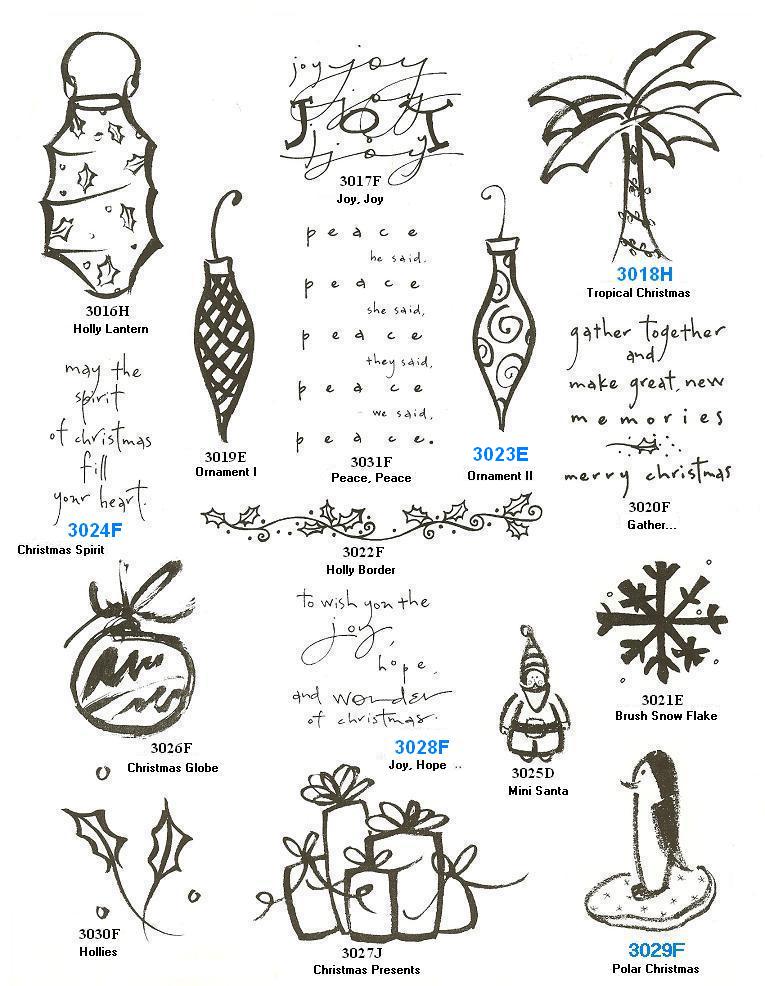 joy joy
joy
JOY
joy
3017F
Joy, Joy
3016H
Holly Lantern
3018H
Tropical Christmas
peace
he said,
peace
she said,
peace
they said,
peace
we said,
peace.
3031F
Peace, Peace
3019E
Ornament I
3023E
Ornament II
may the
spirit
of christmas
fill
your heart.
3024F
Christmas Spirit
gather together
and
make great, new
memories
merry christmas
3020F
Gather...
3022F
Holly Border
to wish you the
joy,
hope,
and wonder
of christmas.
3028F
Joy, Hope ..
3026F
Christmas Globe
3025D
Mini Santa
3021E
Brush Snow Flake
3030F
Hollies
3027J
Christmas Presents
3029F
Polar Christmas